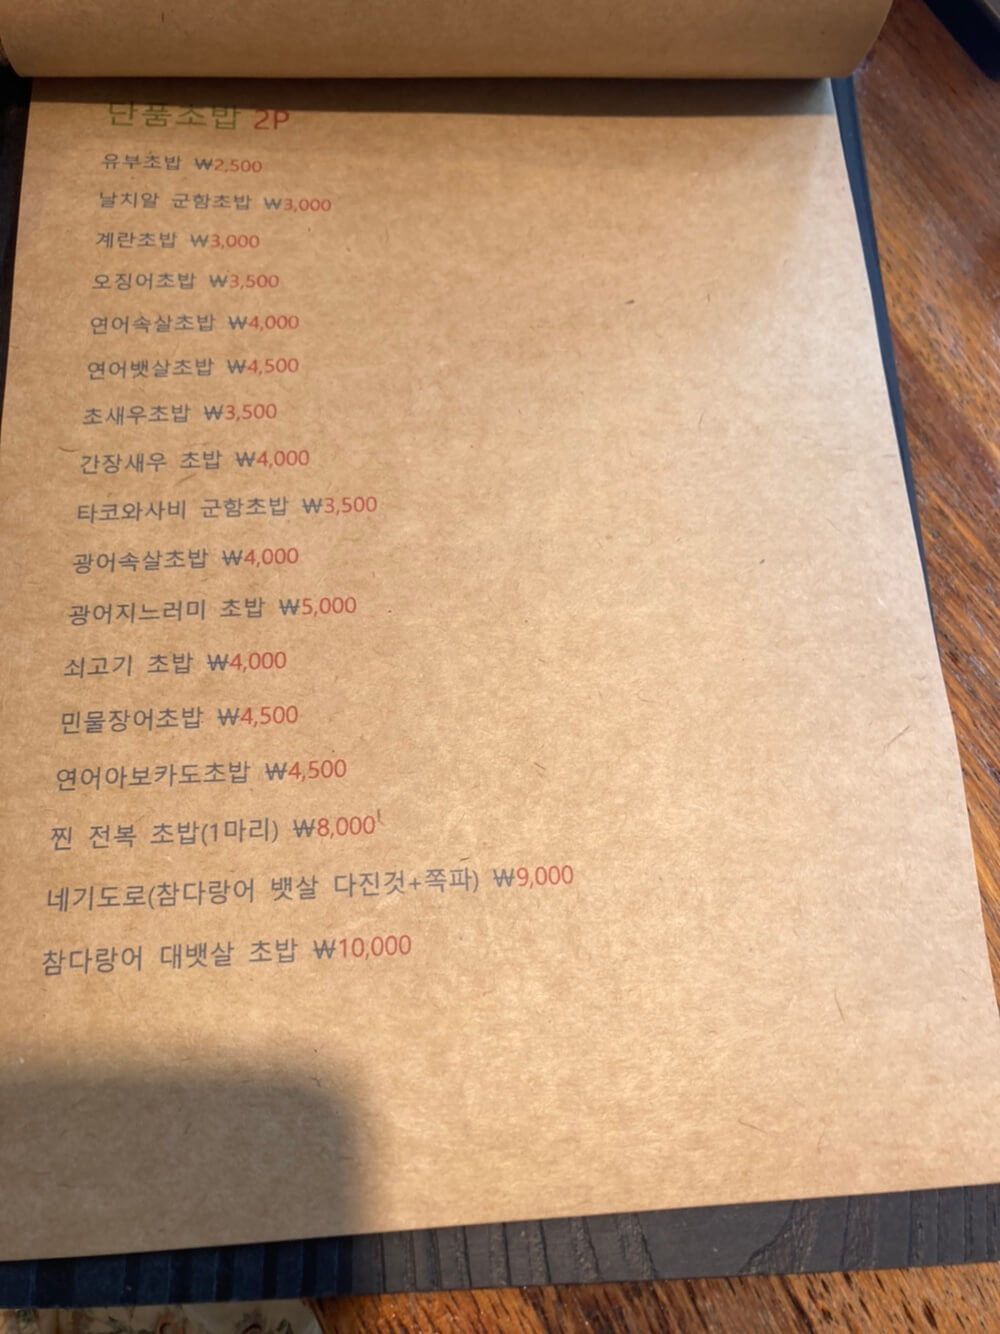 단품초밥 2P
유부초밥 ₩2,500
날치알 군함초밥 ₩3,000
계란초밥 ₩3,000
오징어초밥 ₩3,500
연어속살초밥 ₩4,000
연어뱃살초밥 ₩4,500
초새우초밥 ₩3,500
간장새우 초밥 ₩4,000
타코와사비 군함초밥 ₩3,500
광어속살초밥 ₩4,000
광어지느러미 초밥 ₩5,000
쇠고기 초밥 ₩4,000
민물장어초밥 ₩4,500
연어아보카도초밥 ₩4,500
찐 전복 초밥(1마리) ₩8,000
네기도로(참다랑어 뱃살 다진것+쪽파) ₩9,000
참다랑어 대뱃살 초밥 ₩10,000